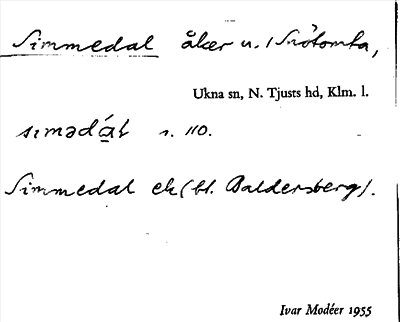 Simmedal åker u. / Snötomta,
Ukna sn, N. Tjusts hd, Klm. l.
sɪmədál s. 110.
Simmedal ek (bl. Baldersberg).
Ivar Modéer 1955